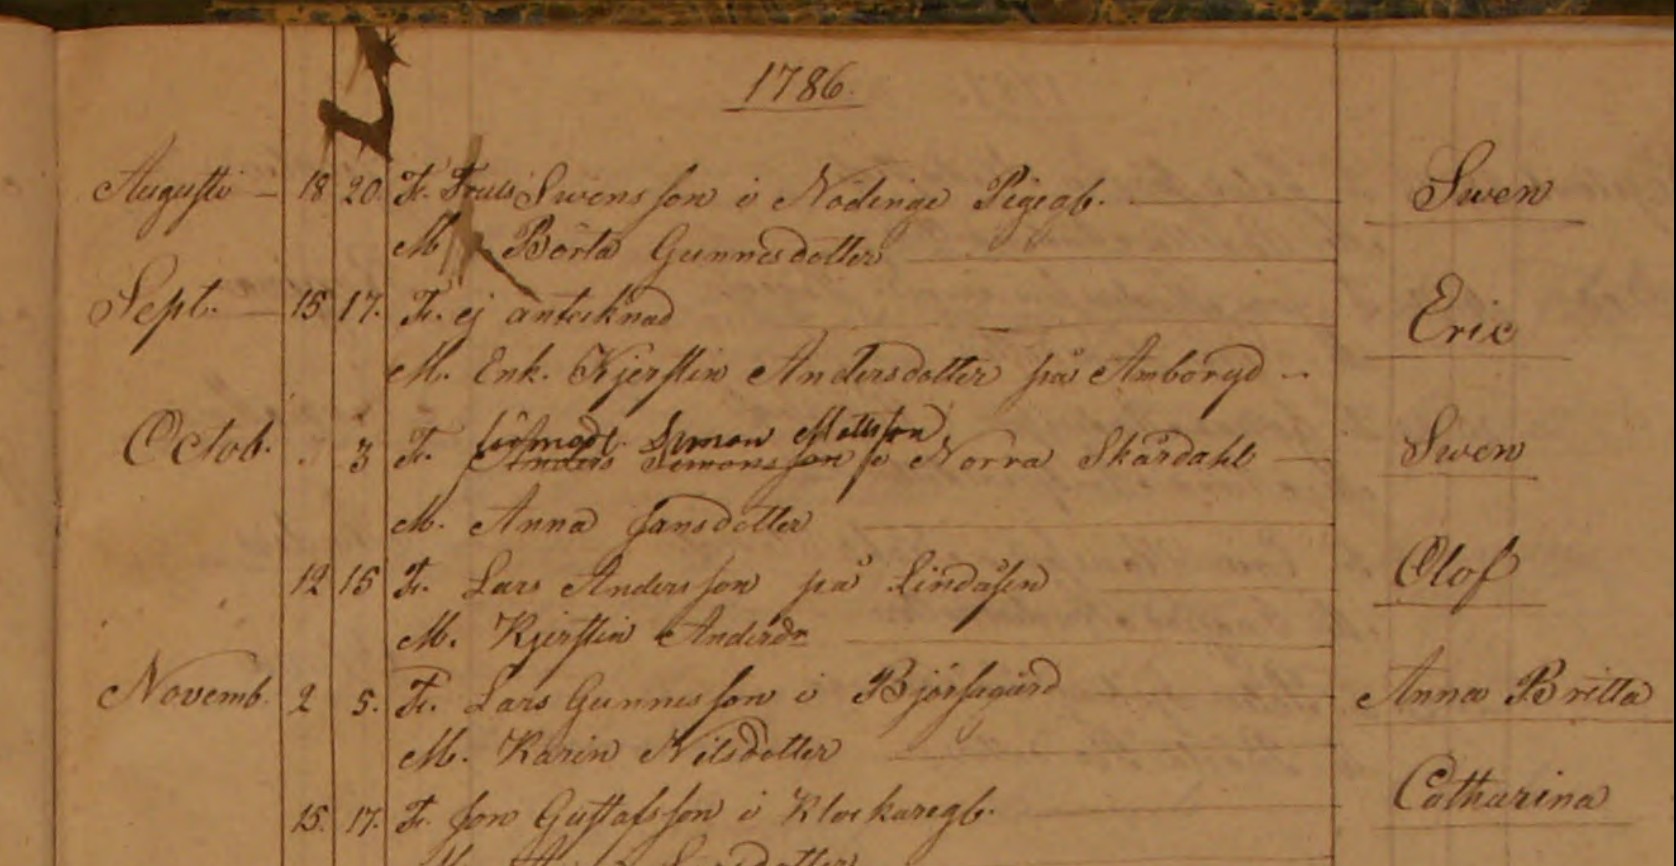 1786.
Augusti 18 20. F. Truls Swensson i Nödinge Pigegb. Swen
M Börta Gunnesdotter
Sept. 15 17. F. ej antecknad Eric
M. Enk. Kjerstin Andersdotter på Amboryd
Simon Mattsson
Octob. 3 F. Anders Simonsson i Norra Skårdahl Swen
M. Anna Jansdotter
12 15 F. Lars Andersson på Lindåsen Olof
M. Kjerstin Andersdr
Novemb. 2 5. F. Lars Gunnesson i Anna Britta
M. Karin Nilsdotter
15. 17. F. Jon Gustafsson i Klockaregb. Catharina
M.